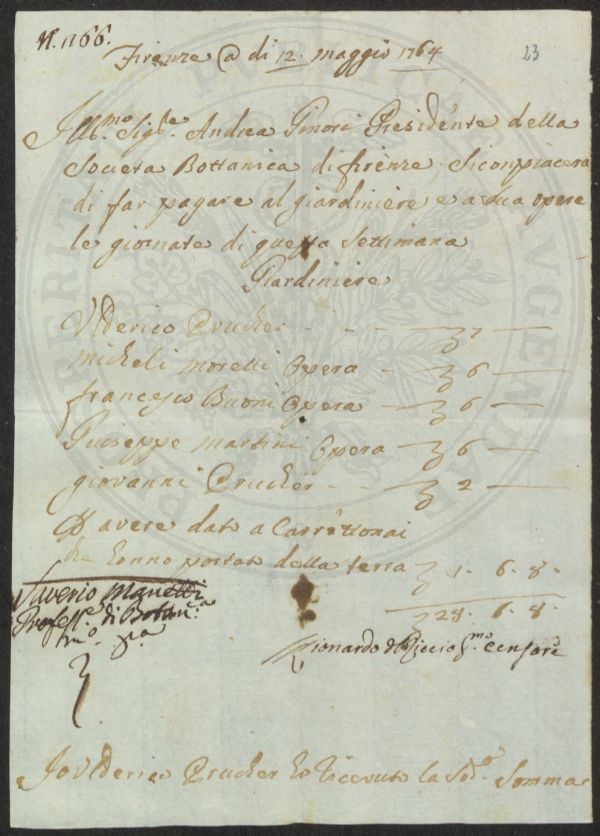 N. 1166.
23
Firenze @ di 12. maggio 1764
Ill.mo Sig.re Andrea Ginori Presidente della
Societa Bottanica di firenze, Siconpiacera
di far pagare al giardiniere e a sua opere
le giornate di questa Settimana
Giardiniere
Ulderico Prucher - - - 7 —
micheli morelli Opera — 6 —
francesco Buoni Opera — 6 —
Guiseppe martini Opera — 6 —
giovanni Prucher - — 2 —
avere dato a Carrettonai
che honno portato della terra 1. 6. 8.
28. 6. 8.
Saverio Manetti
Profess.e di Botan.ca
m.o pa
Lionardo del Riccio Censore
Io Ulderico Prucher ho ricevuto la Sd.a Somma
PROSPERITATI PUBLICAE AUGENDAE